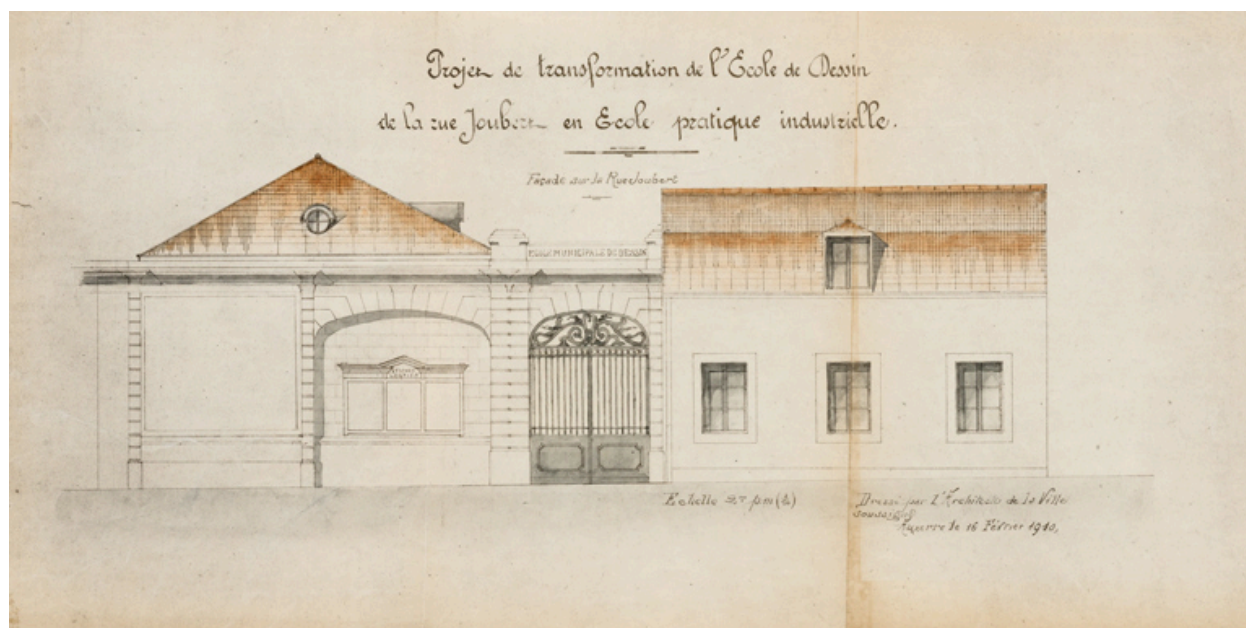 Projet de transformation de l'Ecole de Dessin
de la rue Joubert en Ecole pratique industrielle.
Façade sur la Rue Joubert
ECOLE MUNICIPALE DE DESSIN
Echelle
Dressé par l'Architecte de la Ville
soussigné
Auxerre le 16 Février 1910,